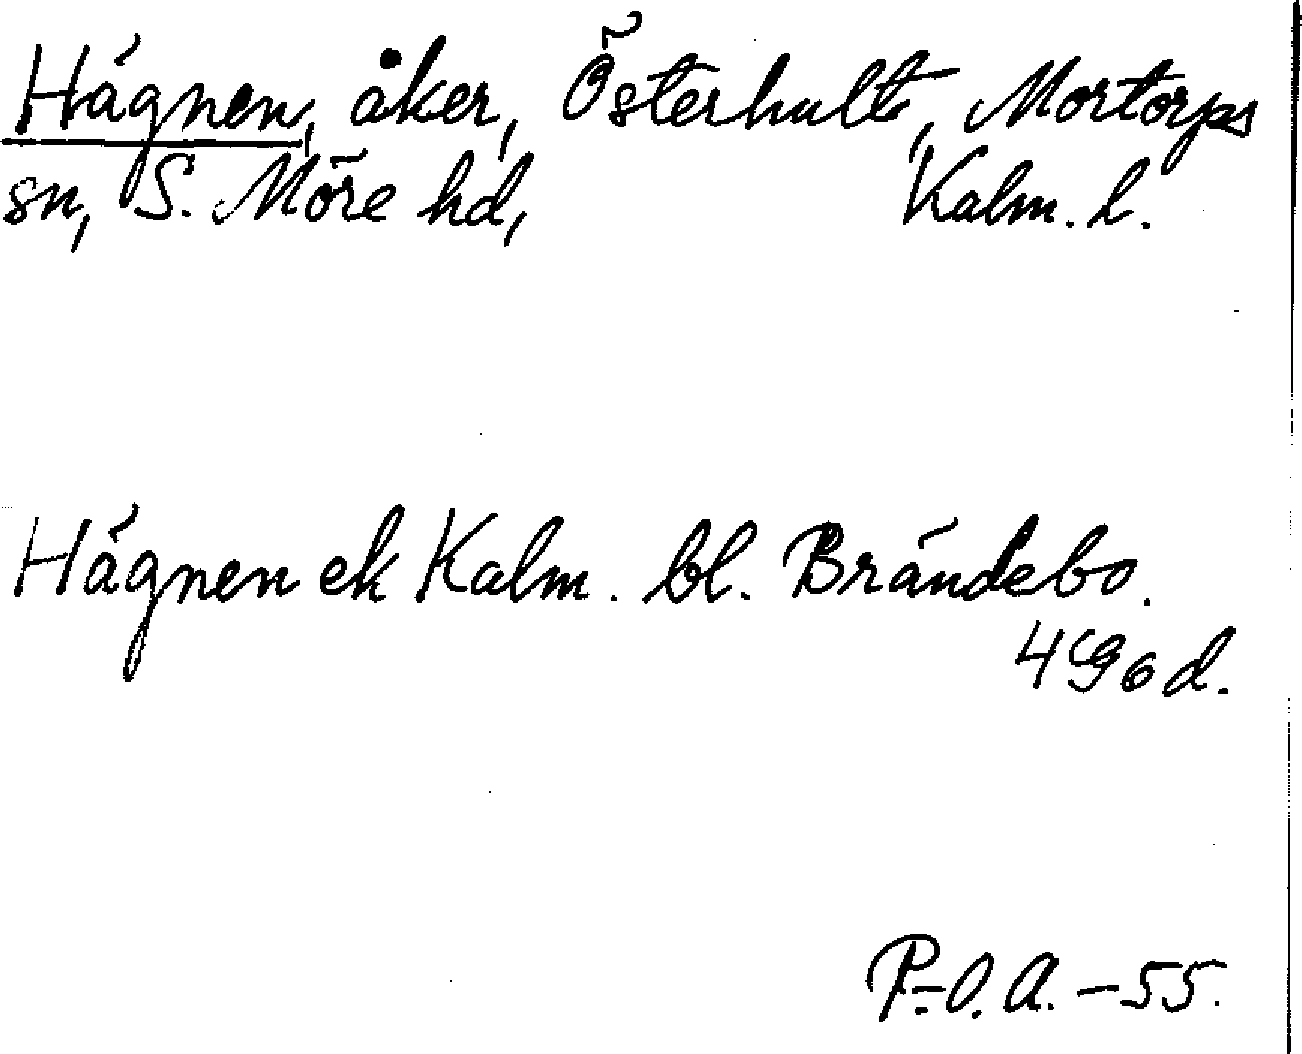 Hägnen, åker, Österhult, Mortorps
sn, S. Möre hd, Kalm. l.
Hägnen ek Kalm. bl. Brändebo.
4 9 6 d.
P.-O. A. - 55.